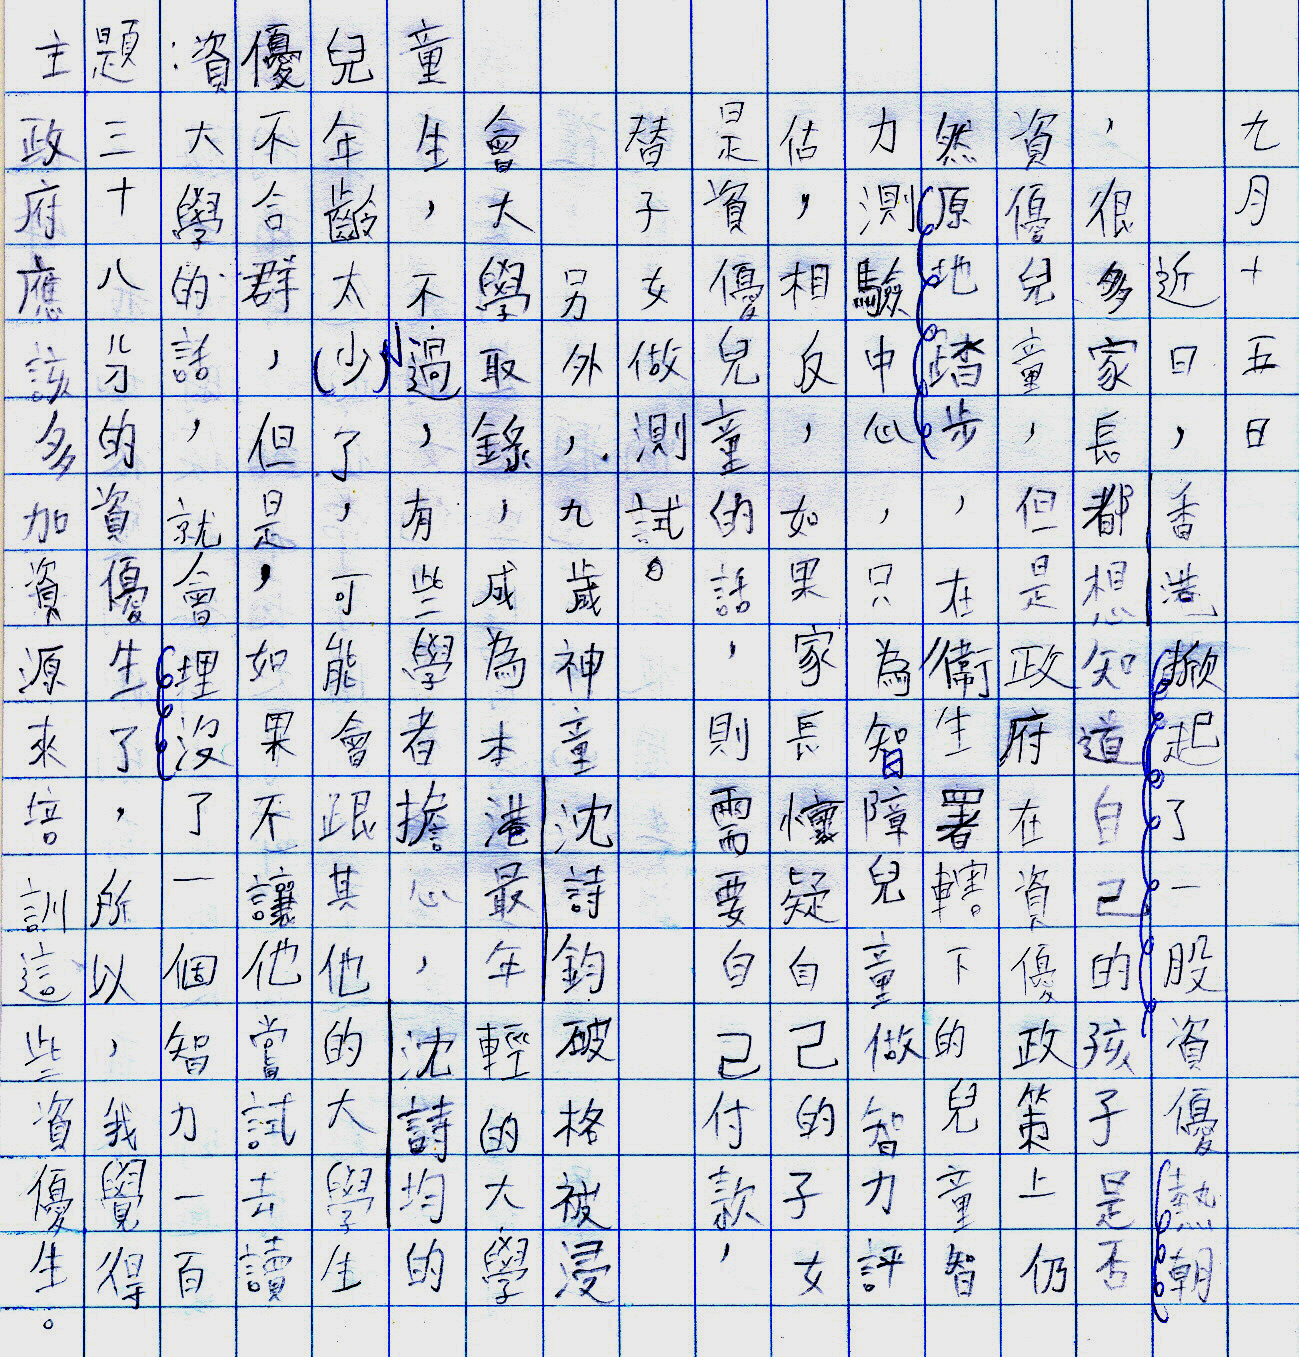 主題:資優兒童
九月十五日
近日,香港掀起了一股資優熱朝
,很多家長都想知道自己的孩子是否
資優兒童,但是政府在資優政策上仍
然原地踏步,在衞生署轄下的兒童智
力測驗中心,只為智障兒童做智力評
估,相反,如果家長懷疑自己的子女
是資優兒童的話,則需要自己付款,
替子女做測試。
另外,九歲神童沈詩鈞破格被浸
會大學取錄,成為本港最年輕的大學
生,不過,有些學者擔心,沈詩均的
年齡太(少)了,可能會跟其他的大學生
不合群,但是,如果不讓他嘗試去讀
大學的話,就會埋沒了一個智力一百
三十八分的資優生了,所以,我覺得
政府應該多加資源來培訓這些資優生。